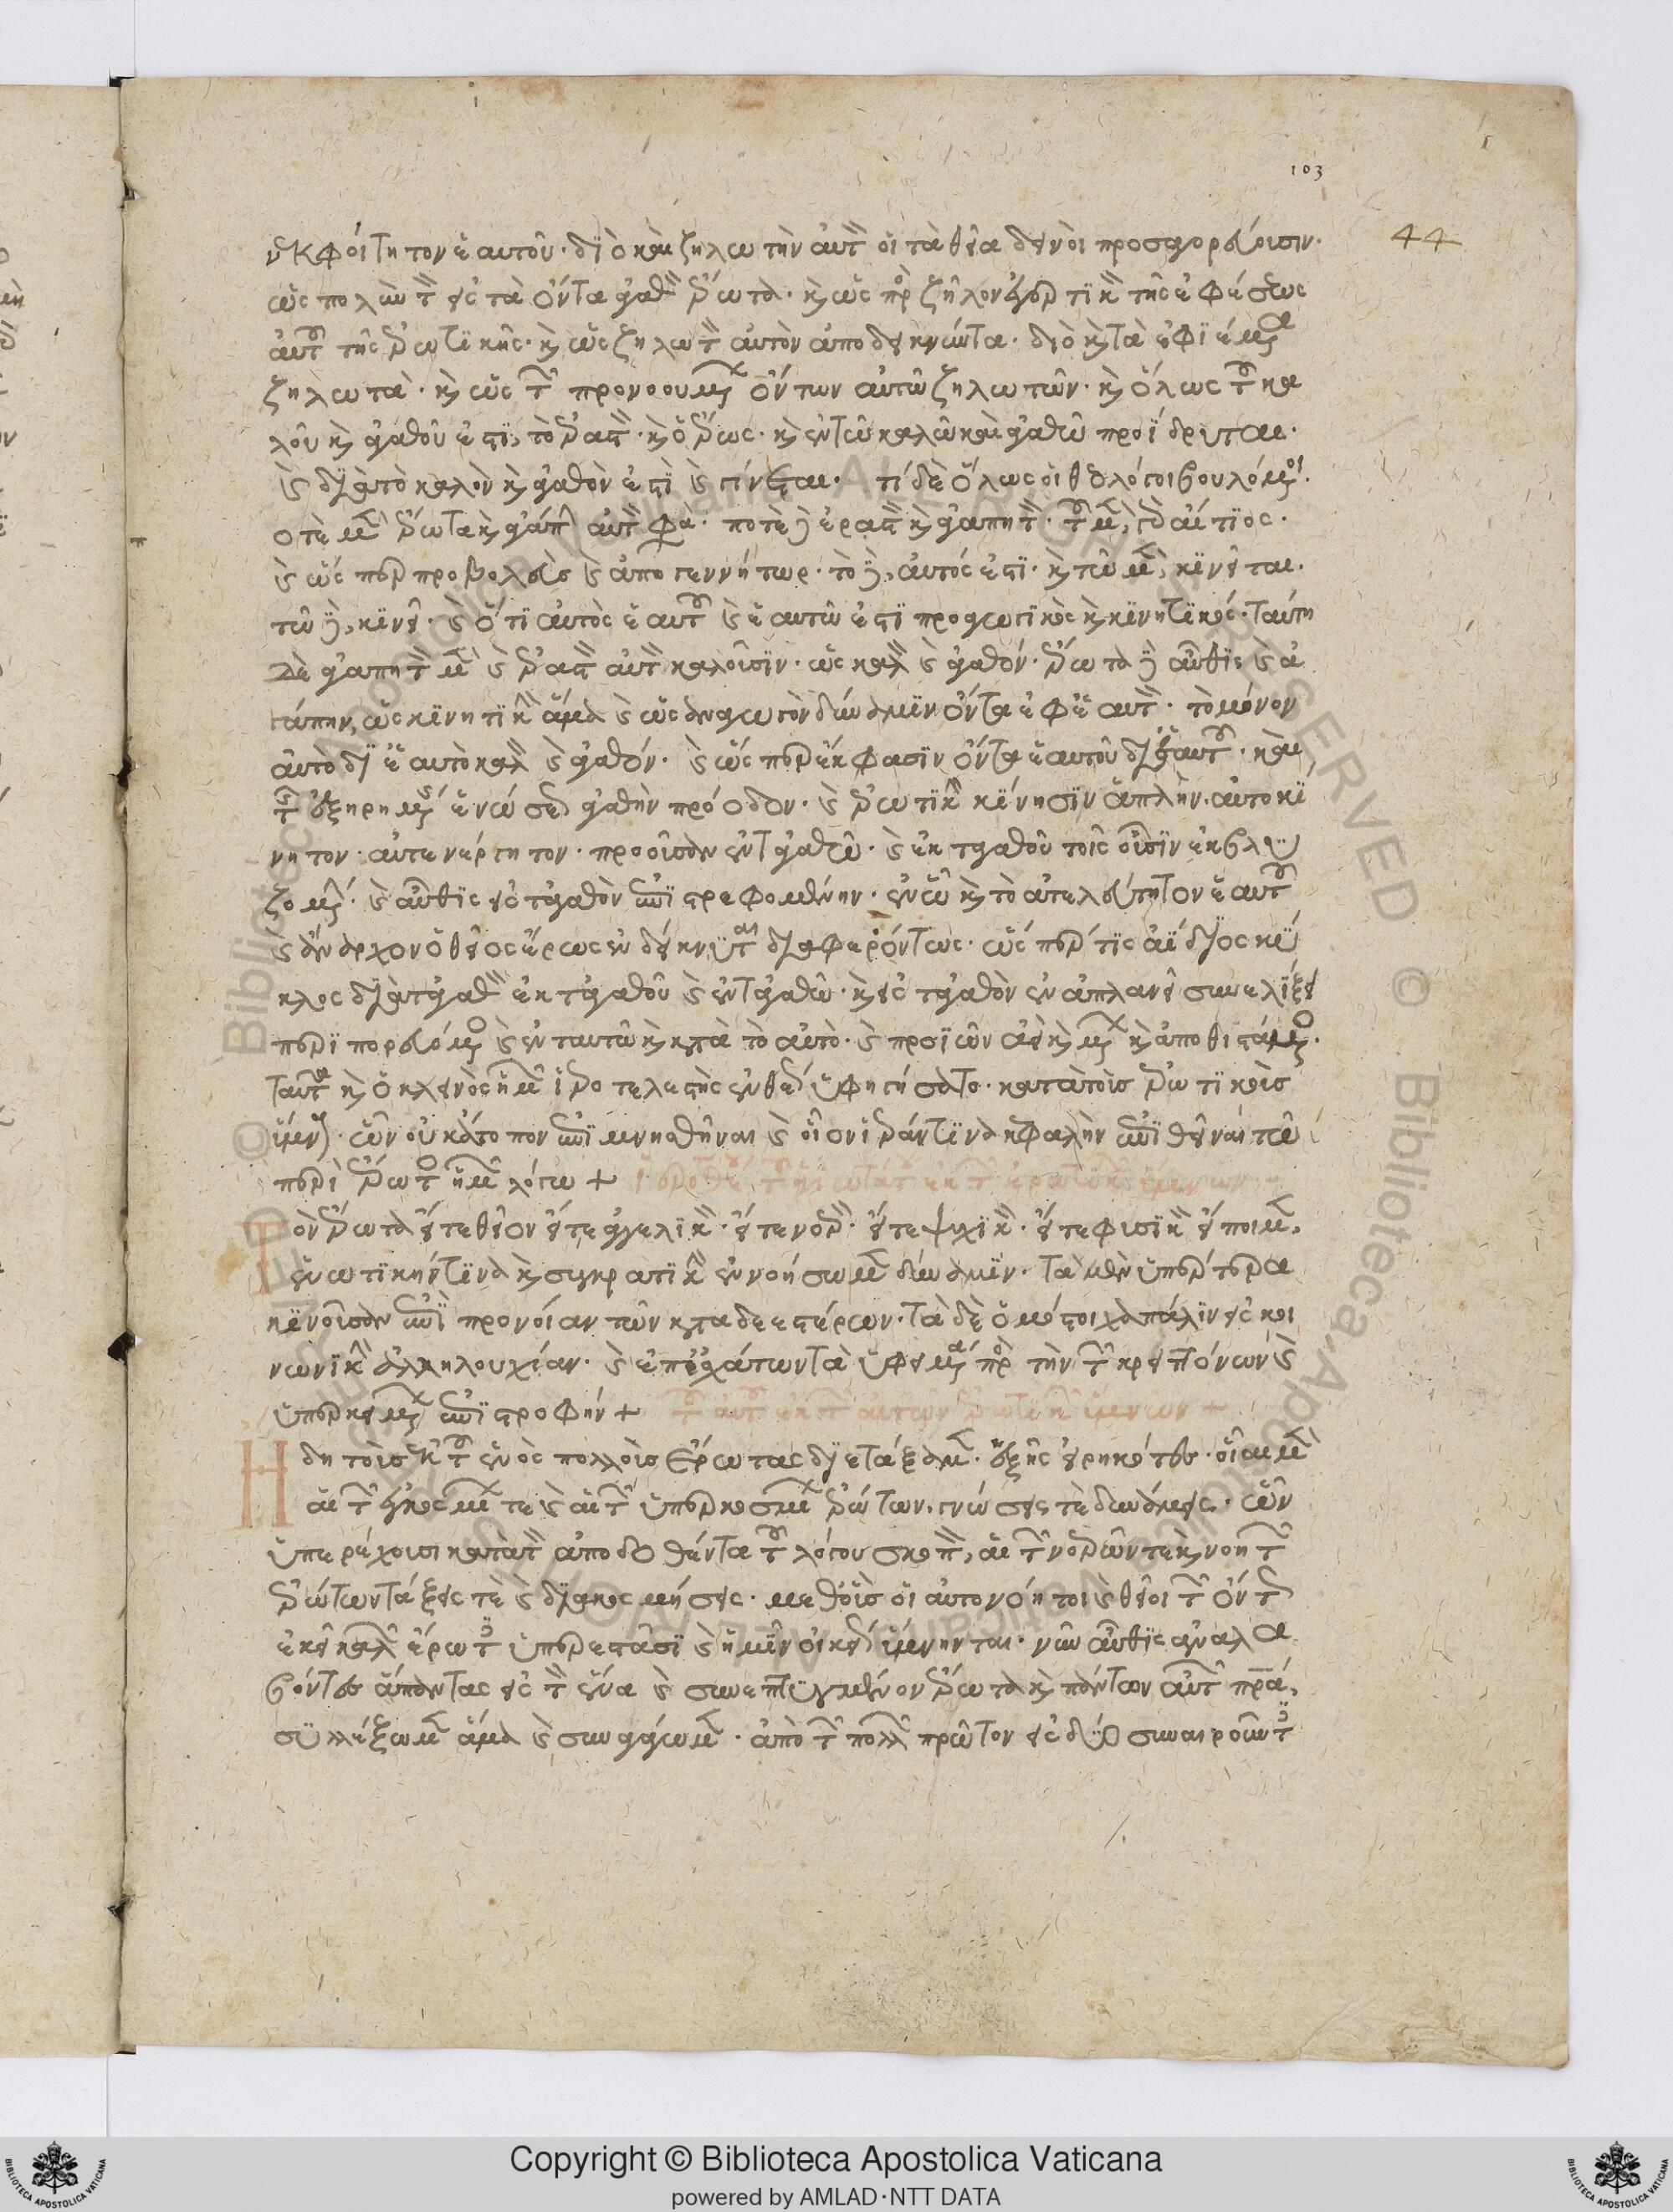 103
44
ἀνεκφοίτητον ἑαυτοῦ· διὸ καὶ ζηλωτὴν αὐτὸν οἱ τὰ θεῖα δεινοὶ προσαγορεύουσιν·
ὡς πολὺν τὸν εἰς τὰ ὄντα ἀγαθὸν ἔρωτα· καὶ ὡς πρὸς ζῆλον ἐγερτικὸν τῆς ἐφέσεως
αὐτοῦ τῆς ἐρωτικῆς· καὶ ὡς ζηλωτὴν αὐτὸν ἀποδεικνύντα· διὸ καὶ τὰ ἐφιέμενα
ζηλωτὰ· καὶ ὡς τῶν προνοουμένων ὄντων αὐτῷ ζηλωτῶν· καὶ ὅλως τοῦ κα
λοῦ καὶ ἀγαθοῦ ἐστι, τὸ ἐραστὸν· καὶ ὁ ἔρως· καὶ ἐν τῷ καλῷ καὶ ἀγαθῷ προΐδρυται·
καὶ διὰ τὸ καλὸν καὶ ἀγαθὸν ἐστὶ καὶ γίνεται· τί δὲ ὅλως οἱ θεολόγοι βουλόμενοι·
ὁτὲ μὲν ἔρωτα καὶ ἀγάπην αὐτόν φασὶ· ποτὲ δὲ ἐραστὸν καὶ ἀγαπητὸν· τοῦ μὲν, γὰρ αἴτιος·
καὶ ὥσπερ προβολεὺς καὶ ἀπογεννήτωρ· τὸ δὲ, αὐτός ἐστι· καὶ τῷ μὲν, κινεῖται·
τῷ δὲ, κινεῖ· καὶ ὅτι αὐτὸς ἑαυτοῦ καὶ ἑαυτῷ ἐστὶ προαγωγικὸς καὶ κινητικός· ταύτῃ
δὲ ἀγαπητὸν μὲν καὶ ἐραστὸν αὐτὸν καλοῦσιν· ὡς καλὸν καὶ ἀγαθόν· ἔρωτα δὲ αὖθις καὶ ἀ
γάπην, ὡς κινητικὴν ἅμα καὶ ὡς ἀναγωγὸν δύναμιν ὄντα ἐφ' ἑαυτὸν· τὸ μόνον
αὐτὸ δι' ἑαυτὸ καλὸν καὶ ἀγαθόν· καὶ ὥσπερ ἔκφανσιν ὄντα ἑαυτοῦ δι' ἑαυτοῦ· καὶ
τῆς ἐξῃρημένης ἑνώσεως ἀγαθὴν πρόοδον· καὶ ἐρωτικὴν κίνησιν ἁπλὴν· αὐτοκί
νητον· αὐτενέργητον· προοῦσαν ἐν τἀγαθῷ· καὶ ἐκ τἀγαθοῦ τοῖς οὖσιν ἐκβλυ
ζομένην· καὶ αὖθις εἰς τἀγαθὸν ἐπιστρεφομένην· ἐν ᾧ καὶ τὸ ἀτελεύτητον ἑαυτοῦ
καὶ ἄναρχον ὁ θεῖος ἔρως ἐνδείκνυται διαφερόντως· ὥσπερ τις ἀΐδιος κύ
κλος διὰ τἀγαθὸν ἐκ τἀγαθοῦ καὶ ἐν τἀγαθῷ· καὶ εἰς τἀγαθὸν ἐν ἀπλανεῖ συνελίξει
περιπορευόμενος καὶ ἐν ταυτῷ καὶ κατὰ τὸ αὐτὸ· καὶ προϊὼν ἀεὶ καὶ μένων καὶ ἀποθιστάμενος·
ταῦτα καὶ ὁ κλεινὸς ἡμῶν ἱεροτελεστὴς ἐνθέως ὑφηγήσατο· κατὰ τοὺς ἐρωτικοὺς
ὕμνους· ὧν οὐκ ἄτοπον ἐπιμνησθῆναι καὶ οἷον ἱεράν τινα κεφαλὴν ἐπιθεῖναι τῷ
περὶ ἔρωτος ἡμῶν λόγῳ + Ἱεροθέου τοῦ ἁγιωτάτου ἐκ τῶν ἐρωτικῶν ὕμνων
Τὸν ἔρωτα εἴτε θεῖον εἴτε ἀγγελικὸν· εἴτε νοερὸν· εἴτε ψυχικὸν· εἴτε φυσικὸν εἴποιμεν,
ἑνωτικήν τινα καὶ συγκρατικὴν ἐννοήσωμεν δύναμιν· τὰ μὲν ὑπέρτερα
κινοῦσαν ἐπὶ προνοίαν τῶν καταδεεστέρων· τὰ δὲ ὁμόστοιχα πάλιν εἰς κοι
νωνικὴν ἀλληλουχίαν· καὶ ἐπ' ἐσχάτων τὰ ὑφειμένα πρὸς τὴν τῶν κρειττόνων καὶ
ὑπερκειμένων ἐπιστροφήν + τοῦ αὐτοῦ ἐκ τῶν αὐτῶν ἐρωτικῶν ὕμνων +
Ἤδη τοὺς ἐκ τοῦ ἑνὸς πολλοὺς ἔρωτας διετάξαμεν· ἑξῆς εἰρηκότες· οἷαι μὲν
αἱ τῶν ἐγκοσμίων τε καὶ αἱ τῶν ὑπερκοσμίων ἐρώτων· γνώσεις τὲ δυνάμεις· ὧν
ὑπερέχουσι κατὰ τὸν ἀποδοθέντα τοῦ λόγου σκοπὸν, αἱ τῶν νοερῶν τὲ καὶ νοητῶν
ἐρώτων τάξεις τὲ καὶ διακοσμήσεις· μεθ' οὓς οἱ αὐτονόητοι καὶ θεῖοι τῶν ὄντως
ἐκεῖ καλῶν ἐρώτων ὑπερεστᾶσι καὶ ἡμῖν οἰκείως ὕμνηνται· νῦν αὖθις ἀναλα
βόντες ἅπαντας εἰς τὸν ἕνα καὶ συνεπτυγμένον ἔρωτα καὶ πάντων αὐτῶν πατέρα,
συλλέξωμεν ἅμα καὶ συναγάγωμεν· ἀπὸ τῶν πολλῶν πρῶτον εἰς δύο συναιροῦντες